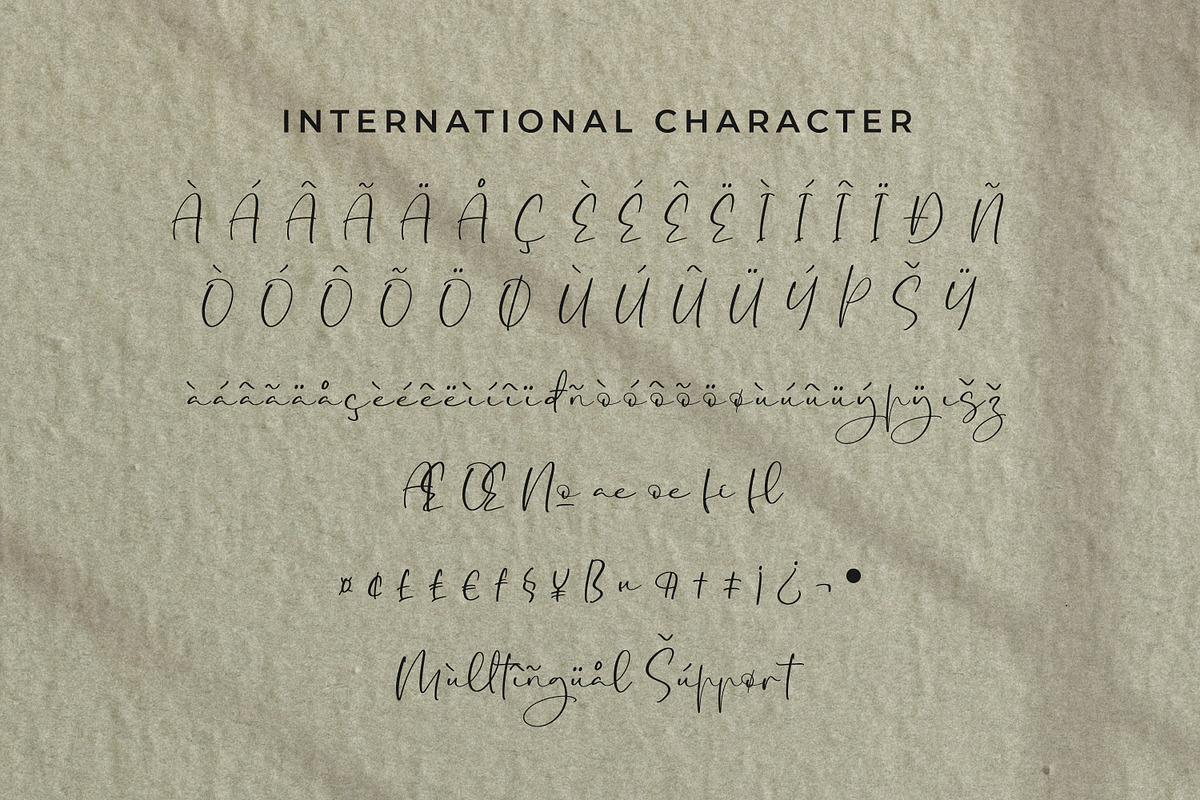 INTERNATIONAL CHARACTER
À Á Â Ã Ä Å Ç È É Ê Ë Ì Í Î Ï Ð Ñ
Ò Ó Ô Õ Ö Ø Ù Ú Û Ü Ý Þ Š Ÿ
àáâãäåçèéêëìíîïđñòóôõöøùúûüýþÿıšž
Æ Œ № ae oe fi fl
¤ ¢ £ ₤ € f § ¥ ß ¶ † ‡ ¡ ¿ ¬ •
Mùlltîñgüål Šúppørt